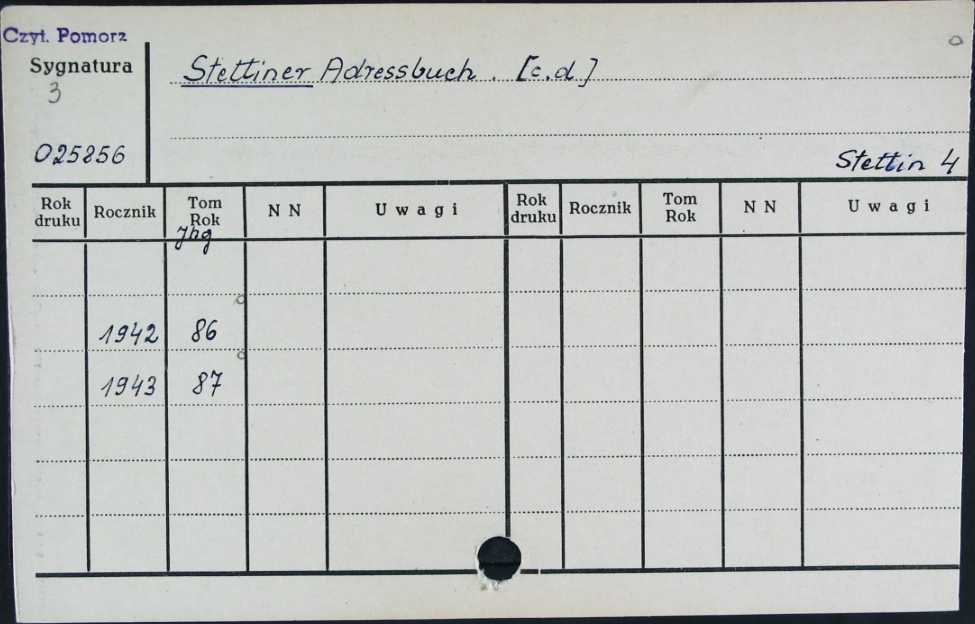 Czyt. Pomorz
Sygnatura
3
025256
Stettiner Adressbuch. [c.d.]
Stettin 4
Rok druku Rocznik Tom Rok N N Uwagi Rok druku Rocznik Tom Rok N N Uwagi
Jhg
1942 86
1943 87